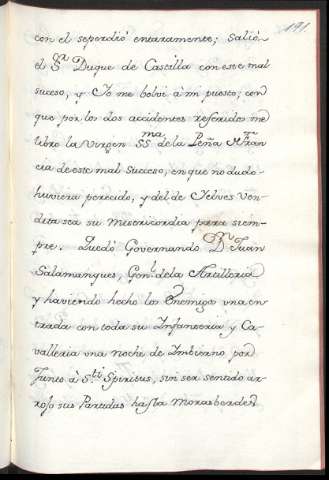 191.
con el seperdió entaramente; Salió
el S.r Duque de Castilla con este mal
suceso, y Yo me bolví à mi puesto; con
que por los dos accidentes referidos me
libro la Virgen SS.ma de la Peña de Fran
cia de este mal Suceso, en que no dudo
huviera perecido, y del de Yelves ven
dita sea su Misericordia para siem-
pre. Quedó Governando D.n Juan
Salamanques, Gen.l de la Artilleria
y haviendo hecho los Enemigos vna en
trada con toda su Infanteria y Ca-
valleria vna noche de Imbierno por
Junto à S.ti Spiritus, sin ser sentido ar
rojo sus Partidas hasta Morasberdes